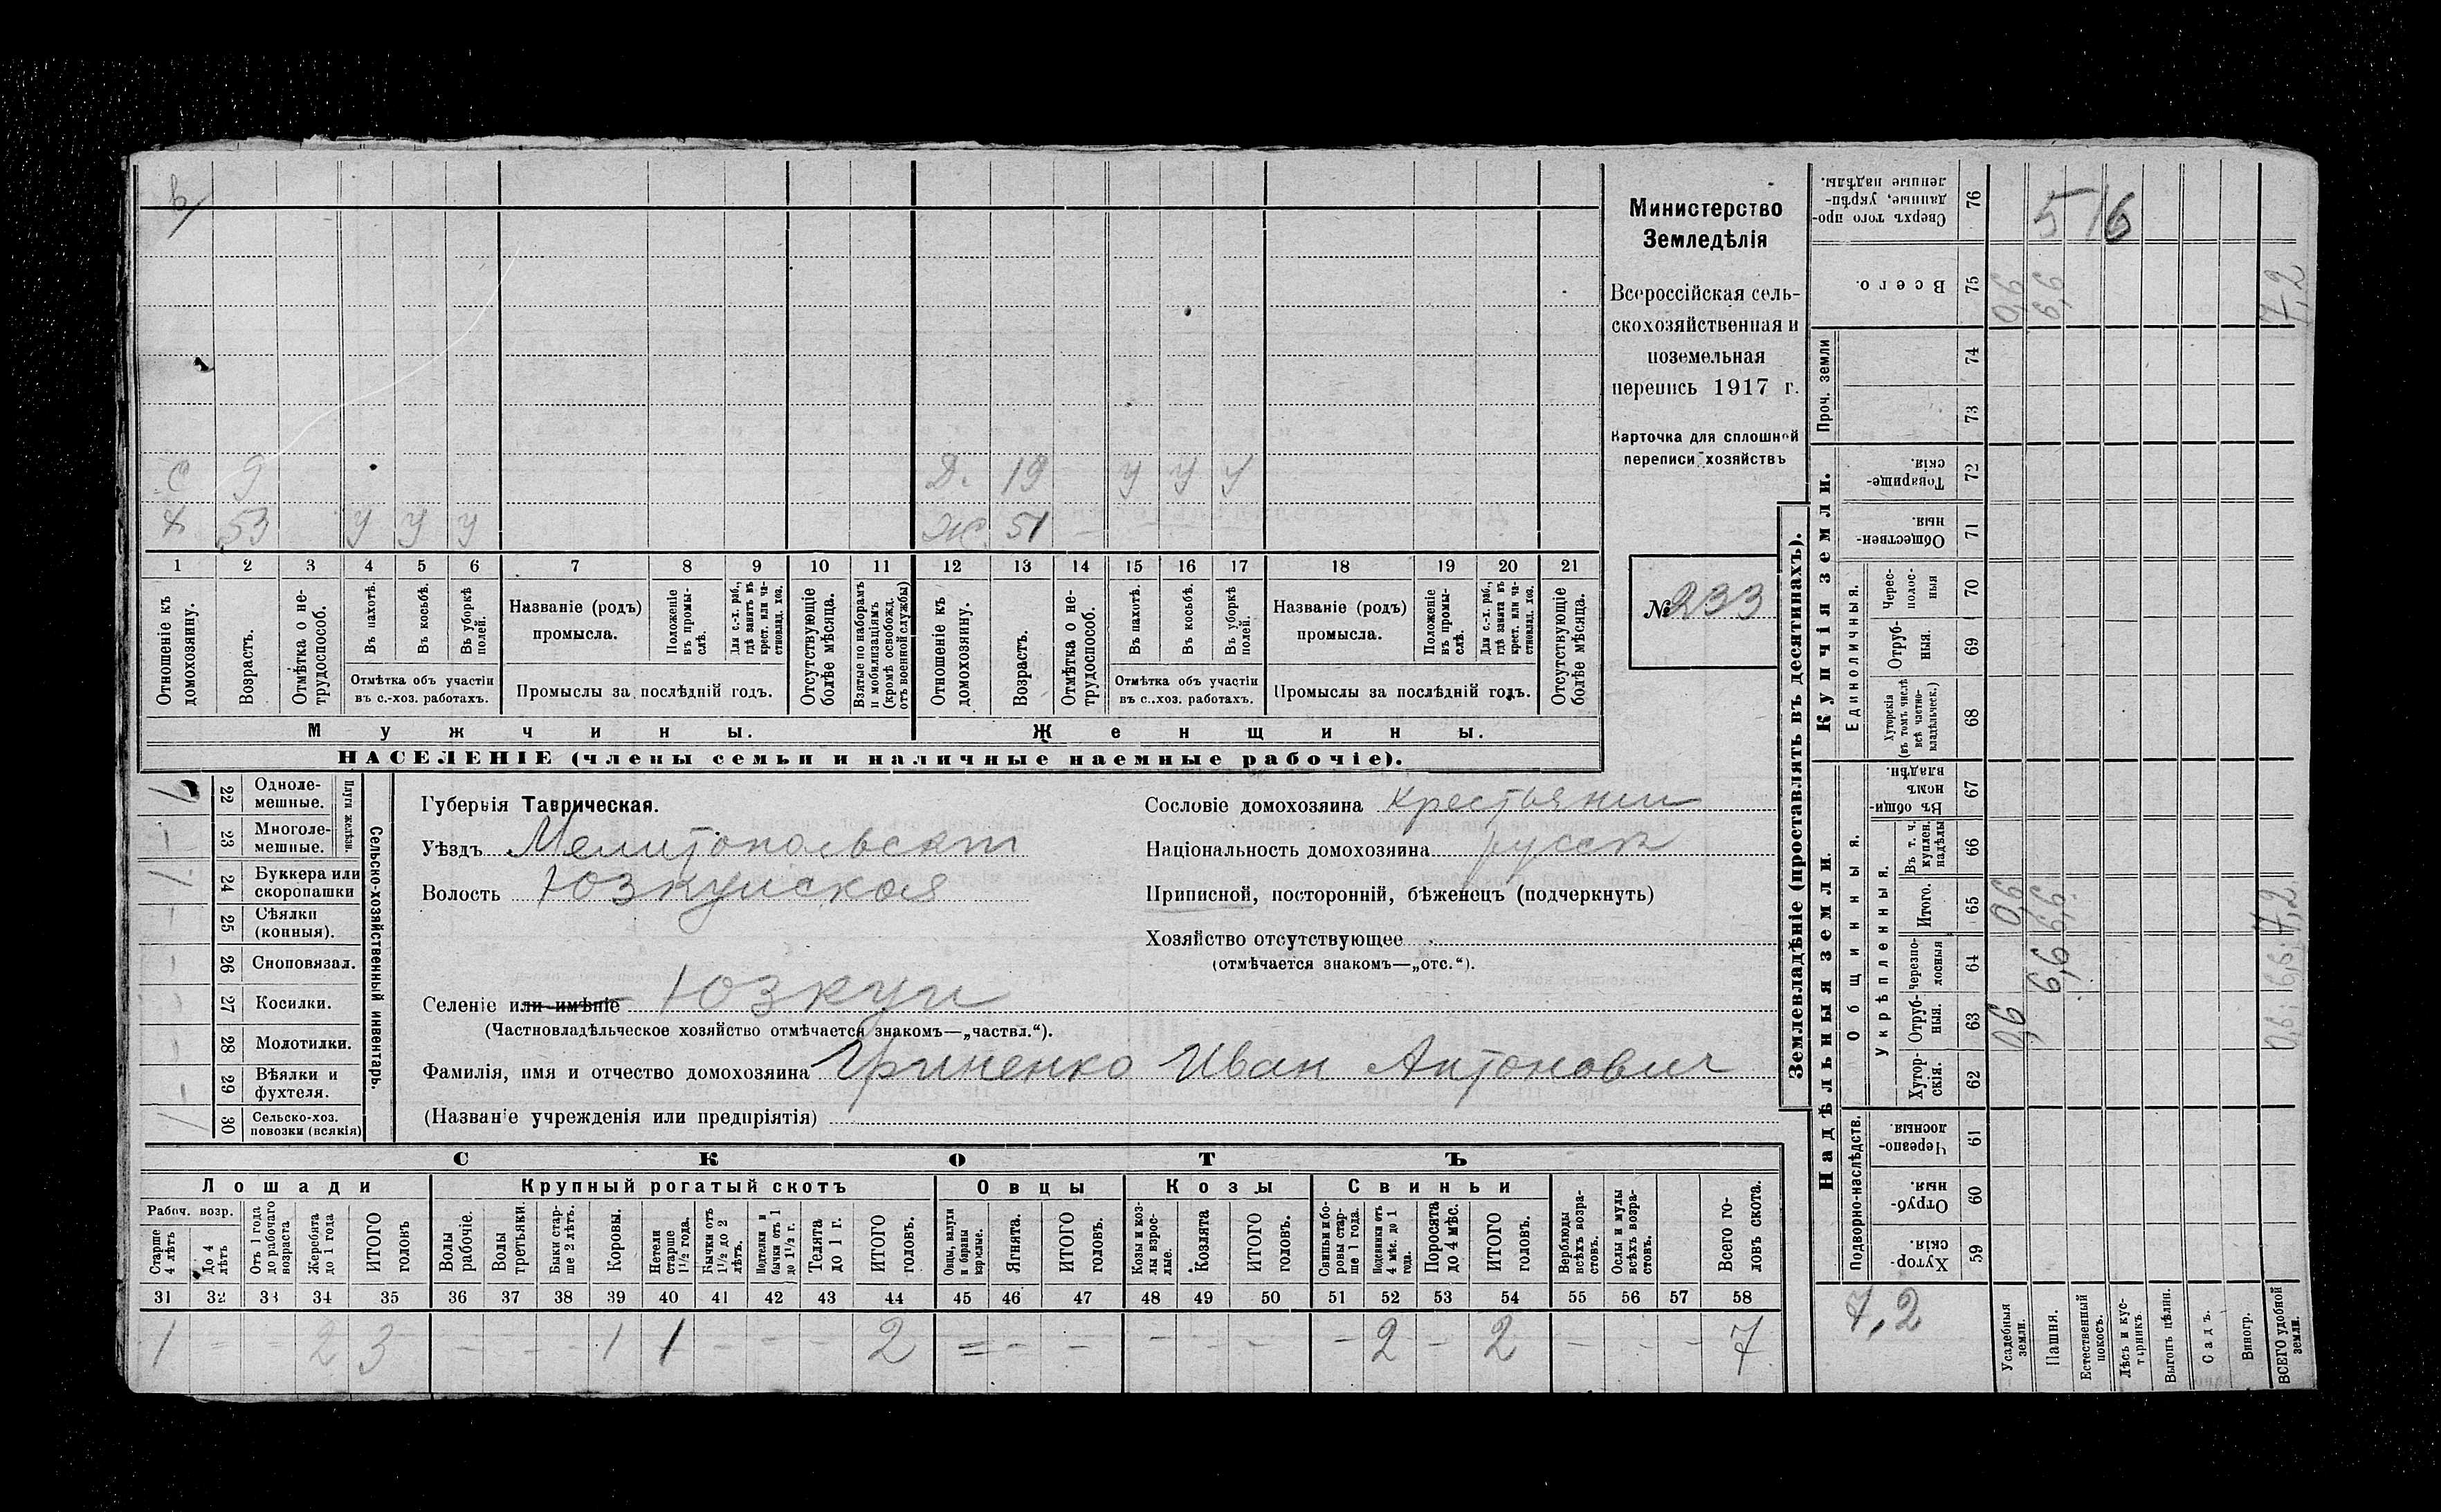 Министерство
Земледѣлія
Всероссійская сель-
скохозяйственная и
поземельная
перепись 1917 г.
Карточка для сплошной
переписи хозяйствъ
№ 233
С 9
Х 53 У У У
Д. 19 У У У
Ж. 51 —
1 2 3 4 5 6 7 8 9 10 11 12 13 14 15 16 17 18 19 20 21
Отношеніе къ домохозяину.
Возрастъ.
Отмѣтка о не-трудоспособ.
Въ пахотѣ.
Въ косьбѣ.
Въ уборкѣ полей.
Отмѣтка объ участіи
въ с.-хоз. работахъ.
Названіе (родъ)
промысла.
Положеніе въ промы-слѣ.
Для с.-х. раб., гдѣ занятъ въ крест. или ча-стновлад. хоз.
Промыслы за послѣдній годъ.
Отсутствующіе болѣе мѣсяца.
Взятые по наборамъ и мобилизаціямъ (кромѣ освобожд. отъ военной службы)
Отношеніе къ домохозяину.
Возрастъ.
Отмѣтка о не-трудоспособ.
Въ пахотѣ.
Въ косьбѣ.
Въ уборкѣ полей.
Отмѣтка объ участіи
въ с..хоз. работахъ.
Названіе (родъ)
промысла.
Положеніе въ промы-слѣ.
Для с.-х. раб., гдѣ занята въ крест. или ча-стновлад. хоз.
Промыслы за послѣдній годъ.
Отсутствующіе болѣе мѣсяца.
Мужчины.
Женщины.
НАСЕЛЕНІЕ (члены семьи и наличные наемные рабочіе).
Сельско-хозяйственный инвентарь.
Плуги желѣзн.
22 Однолемешные.
23 Многолемешные.
24 Буккера или скоропашки
25 Сѣялки (конныя).
26 Сноповязал.
27 Косилки.
28 Молотилки.
29 Вѣялки и фухтеля.
30 Сельско-хоз. повозки (всякія)
Губернія Таврическая.
Уѣздъ Мелитопольскій
Волость Юзкуйская
Селеніе или имѣніе Юзкуи
(Частновладѣльческое хозяйство отмѣчается знакомъ—„частвл.“).
Фамилія, имя и отчество домохозяина Гриненко Иван Антонович
(Названіе учрежденія или предпріятія)
Сословіе домохозяина крестьянин
Національность домохозяина русск
Приписной, посторонній, бѣженецъ (подчеркнуть)
Хозяйство отсутствующее
(отмѣчается знакомъ—„отс.“).
СКОТЪ
Лошади
Крупный рогатый скотъ
Овцы
Козы
Свиньи
Рабоч. возр.
Старше 4 лѣтъ
До 4 лѣтъ
Отъ 1 года до рабочаго возраста
Жеребята до 1 года
ИТОГО головъ
Волы рабочіе.
Волы третьяки.
Быки стар-ше 2 лѣтъ.
Коровы.
Нетели старше 1½ года.
Бычки отъ 1½ до 2 лѣтъ.
Подтелки и бычки отъ 1 до 1½ г.
Телята до 1 г.
ИТОГО головъ.
Овцы, валухи и бараны взрослые.
Ягнята.
ИТОГО головъ.
Козы и коз-лы взрос-лые.
Козлята
ИТОГО головъ.
Свиньи и бо-ровы стар-ше 1 года.
Подсвинки отъ 4 мѣс. до 1 года.
Поросята до 4 мѣс.
ИТОГО головъ.
Верблюды всѣхъ возра-стовъ.
Ослы и мулы всѣхъ возра-стовъ.
Всего го-ловъ скота.
31 32 33 34 35 36 37 38 39 40 41 42 43 44 45 46 47 48 49 50 51 52 53 54 55 56 57 58
1 - - 2 3 - - - 1 1 - - - 2 = - - - - - - 2 - 2 - - - 7
Землевладѣніе (проставлять въ десятинахъ).
Купчія земли.
Надѣльныя земли.
Сверхъ того про-данные, укрѣп-ленные надѣлы. 76
Всего. 75
Проч. земли
74
73
Товарище-скія. 72
Обществен-ныя. 71
Единоличныя.
Черес-полос-ныя 70
Отруб-ныя. 69
Хуторскія (въ томъ числѣ всѣ частно-владѣльческ.) 68
Въ общин-номъ владѣн. 67
Общинныя.
Укрѣпленныя.
Въ т. ч. куплен. надѣлы 66
Итого. 65
Черезпо-лосныя 64
Отруб-ныя. 63
Хутор-скія. 62
Подворно-наслѣдств.
Черезпо-лосныя 61
Отруб-ныя. 60
Хутор-скія. 59
516
0,6 6,6 7,2
0,6 6,6 7,2
6,6 6,6
0,6 0,6
7,2
Усадебныя земли.
Пашня.
Естественный покосъ.
Лѣсъ и кус-тарникъ.
Выгонъ цѣлин.
Садъ.
Виногр.
ВСЕГО удобной земли.